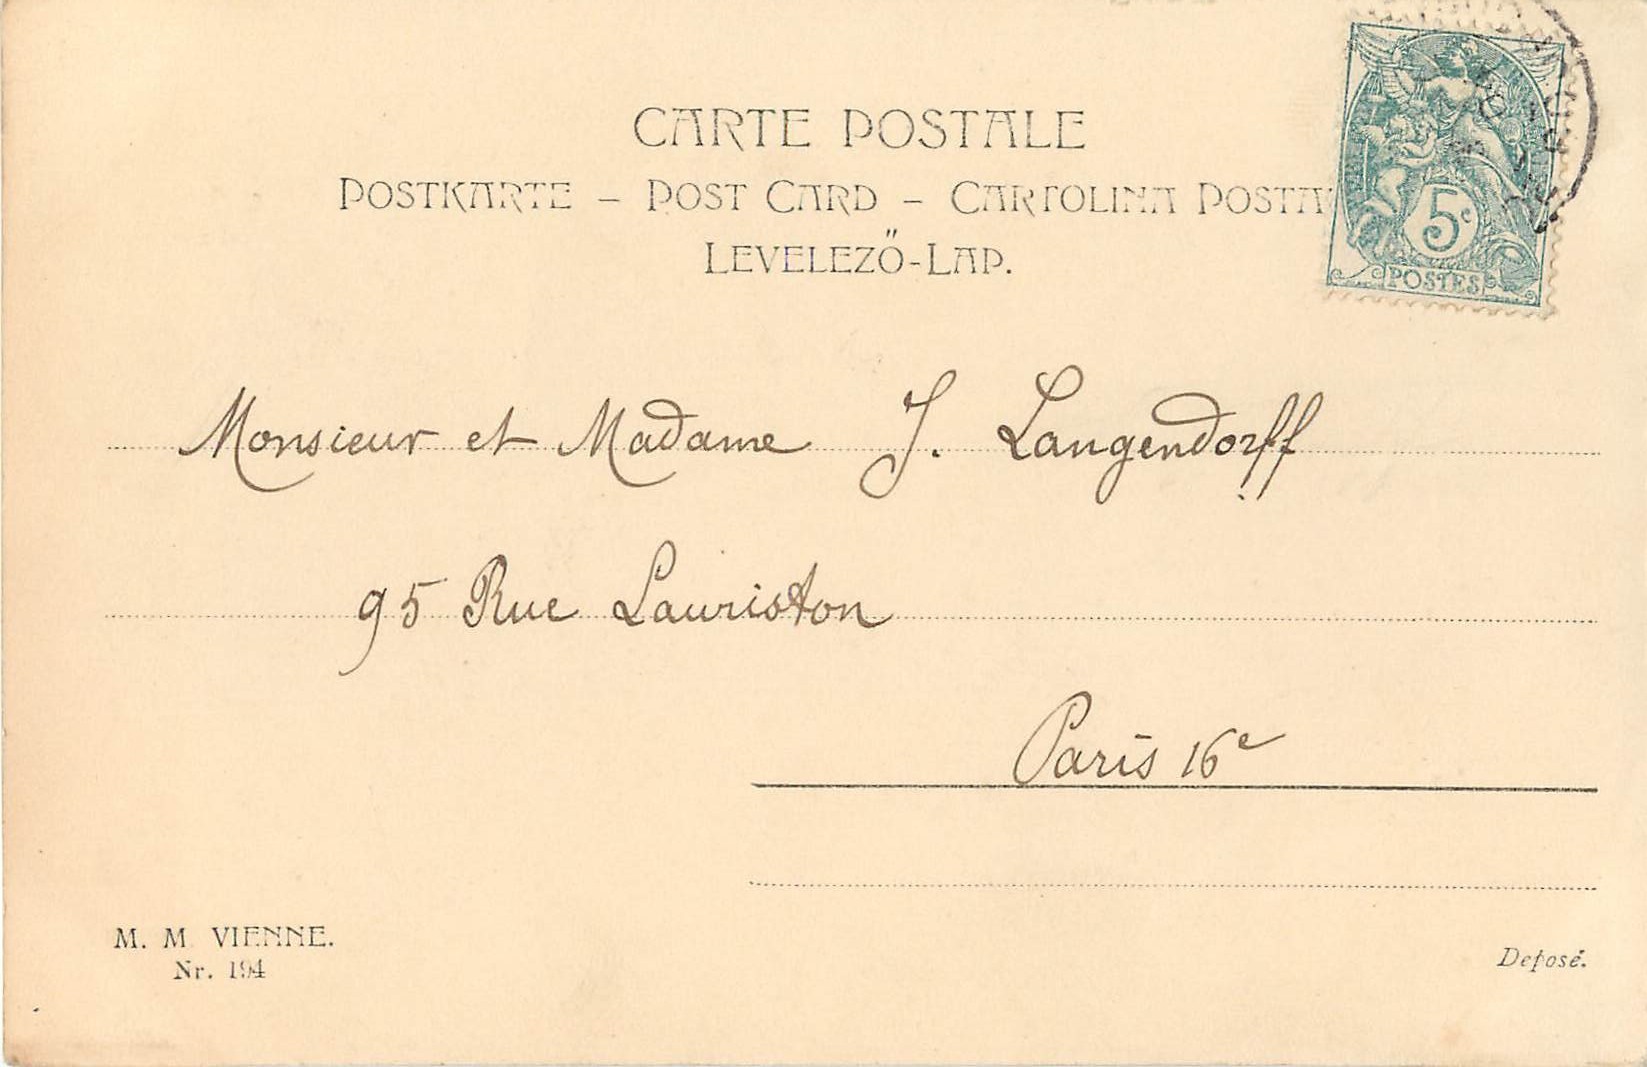 CARTE POSTALE
POSTKARTE – POST CARD – CARTOLINA POSTA
LEVELEZŐ-LAP.
5c
POSTES
Monsieur et Madame J. Langendorff
95 Rue Lauriston
Paris 16e
M. M. VIENNE.
Nr. 194
Deposé.